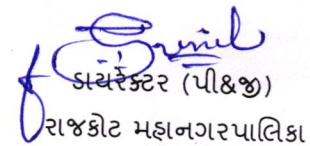 ડાયરેક્ટર (પી&જી)
રાજકોટ મહાનગરપાલિકા